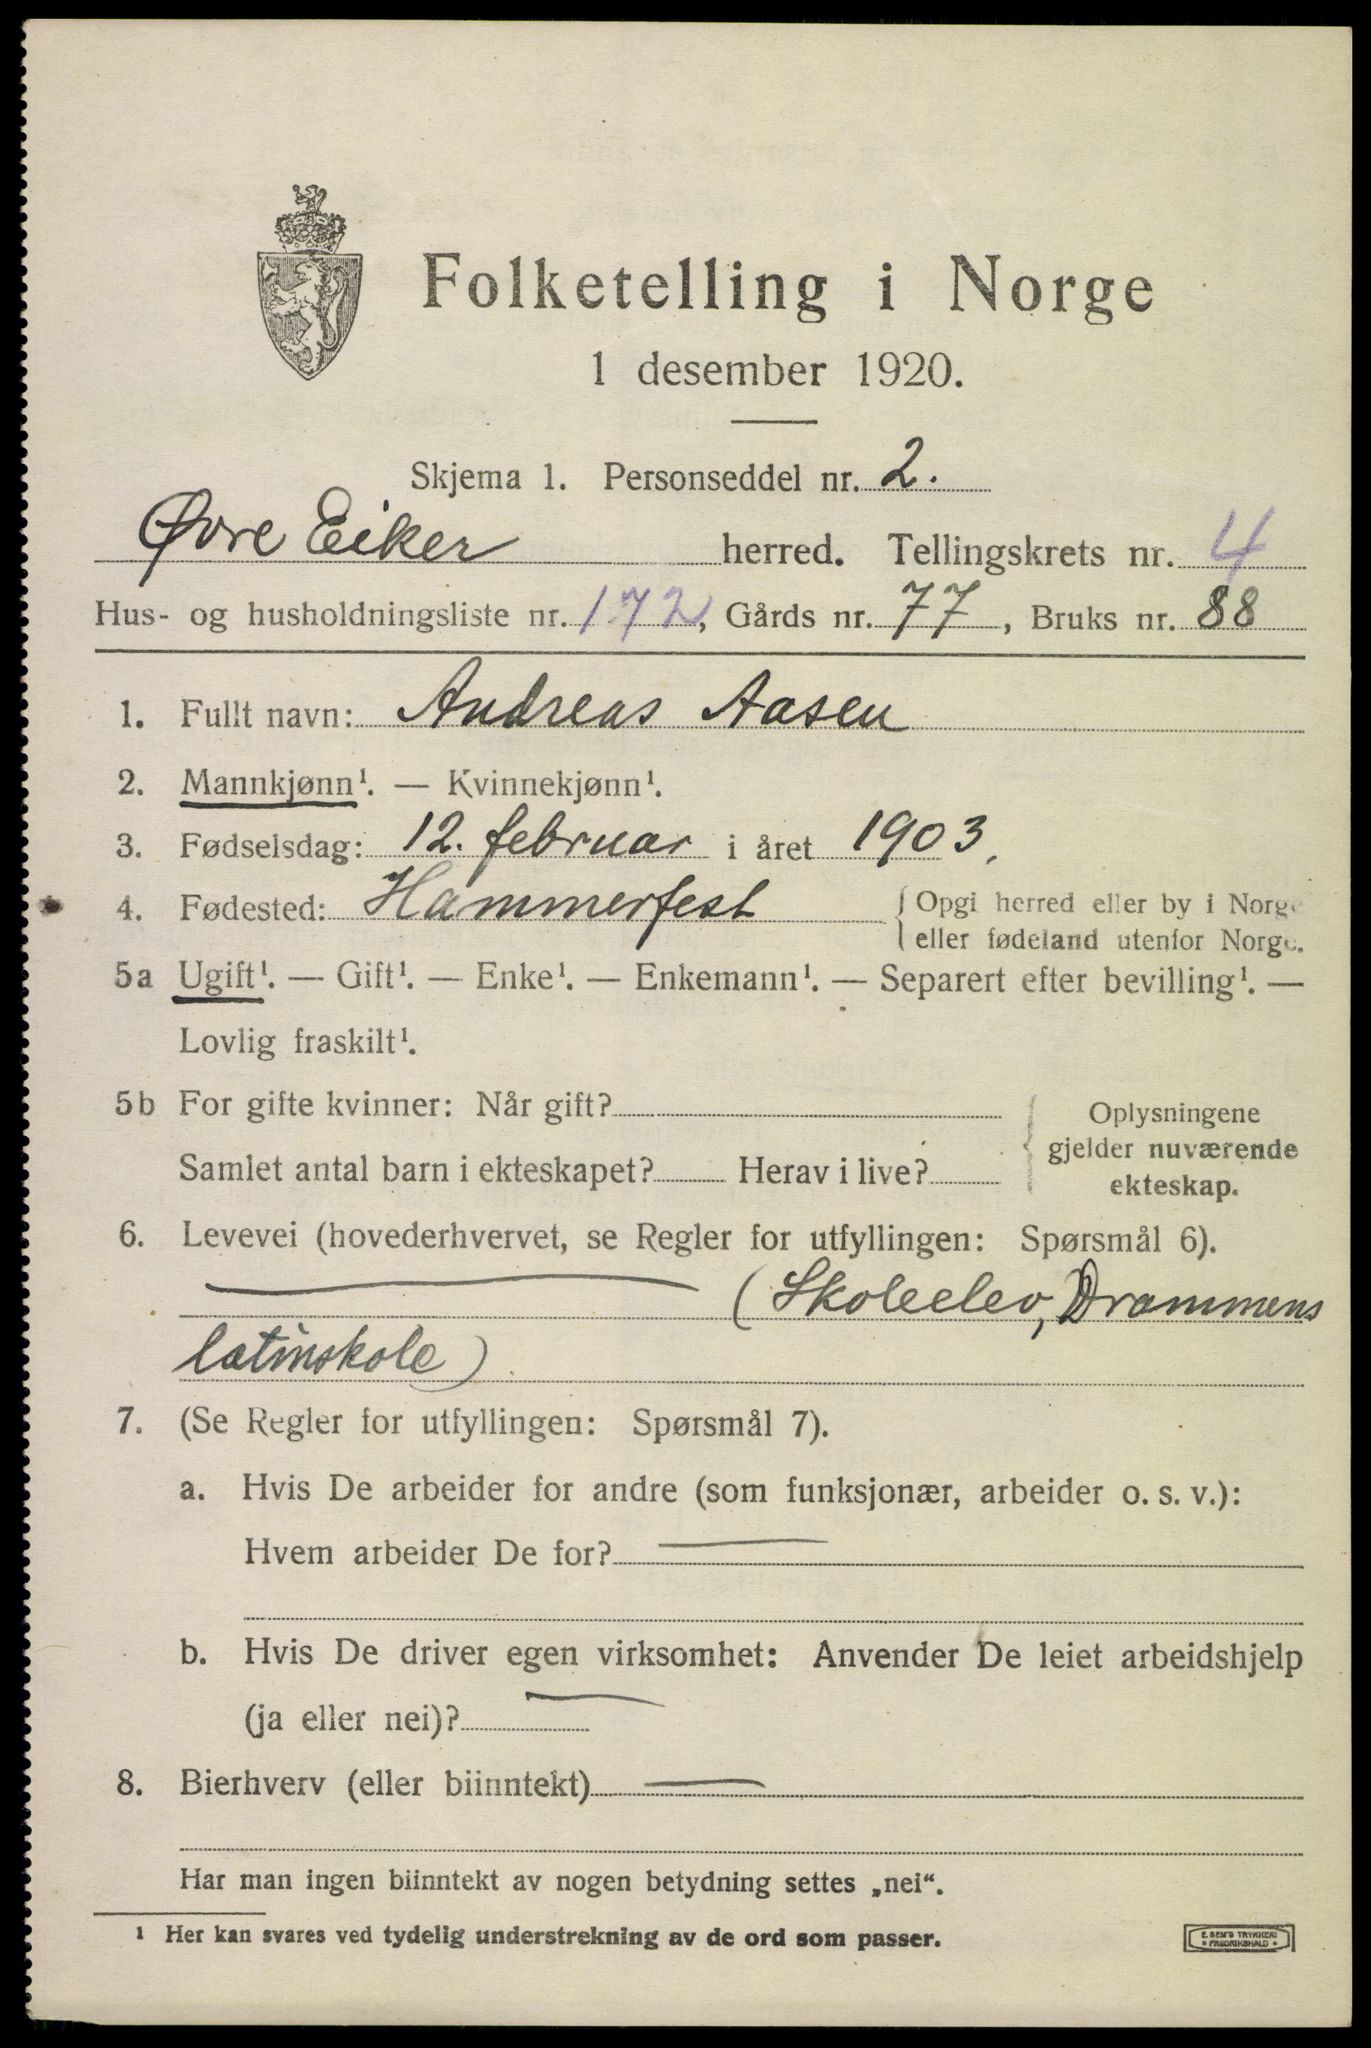 Folketelling i Norge
1 desember 1920.
Skjema 1. Personseddel nr. 2.
Øvre Eiker herred. Tellingskrets nr. 4
Hus- og husholdningsliste nr. 172, Gårds nr. 77, Bruks nr. 88
1. Fullt navn: Andreas Aasen
2. Mannkjønn¹. — Kvinnekjønn¹.
3. Fødselsdag: 12. februar i året 1903.
4. Fødested: Hammerfest { Opgi herred eller by i Norge
eller fødeland utenfor Norge.
5a Ugift¹. — Gift¹. — Enke¹. — Enkemann¹. — Separert efter bevilling¹. —
Lovlig fraskilt¹.
5b For gifte kvinner: Når gift?
Samlet antal barn i ekteskapet? Herav i live?
{ Oplysningene
gjelder nuværende
ekteskap.
6. Levevei (hovederhvervet, se Regler for utfyllingen: Spørsmål 6).
— (Skoleelev, Drammens
latinskole)
7. (Se Regler for utfyllingen: Spørsmål 7).
a. Hvis De arbeider for andre (som funksjonær, arbeider o. s. v.):
Hvem arbeider De for? —
b. Hvis De driver egen virksomhet: Anvender De leiet arbeidshjelp
(ja eller nei)? —
8. Bierhverv (eller biinntekt) —
Har man ingen biinntekt av nogen betydning settes „nei“.
¹ Her kan svares ved tydelig understrekning av de ord som passer.
E. SEM'S TRYKKERI
• FREDRIKSHALD •